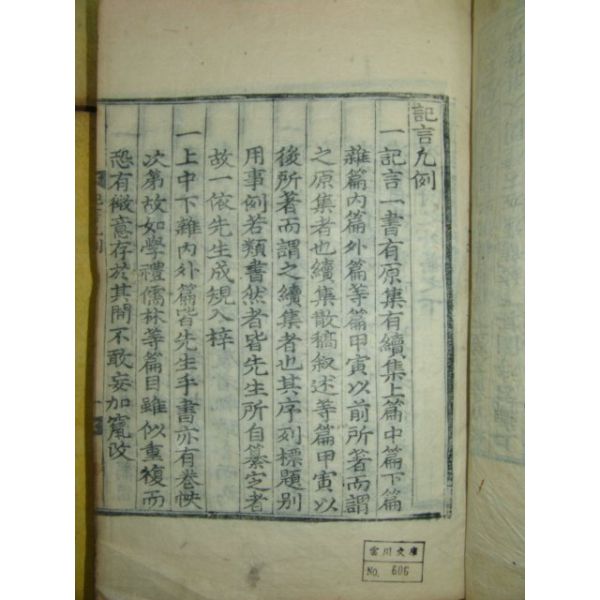 記言凡例
一記言一書有原集有續集上篇中篇下篇
雜篇內篇外篇等篇甲寅以前所著而謂
之原集者也續集散稿叙述等篇甲寅以
後所著而謂之續集者也其序列標題別
用事例若類書然者皆先生所自纂定者
故一依先生成規入梓
一上中下雜內外篇皆先生手書亦有卷帙
次第故如學禮儒林等篇目雖似重複而
恐有微意存於其間不敢妄加竄改
記言凡例
一
雲川文庫
No. 606